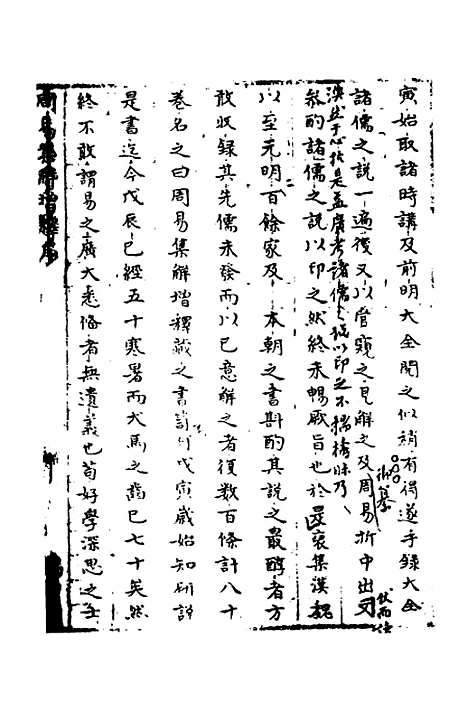 寅始取諸時講及前明大全閱之似稍有得遂手錄大全
諸儒之說一遍後又以管窺之見解之及
御纂
周易折中出又
伏而
渙然于心於是益廣考諸儒之說以印之不揣檮昧乃
參酌諸儒之說以印之然終未暢厥旨也於是裒集漢魏
以至元明百餘家及 本朝之書斟酌其說之最醇者方
敢收錄其先儒未發而以己意解之者復數百條計八十
卷名之曰周易集解增釋藏之書笥自戊寅歲始知研說
是書迄今戊辰已經五十寒暑而犬馬之齒已七十矣然
終不敢謂易之廣大悉備者無遺義也苟好學深思之士
周易集解增釋序